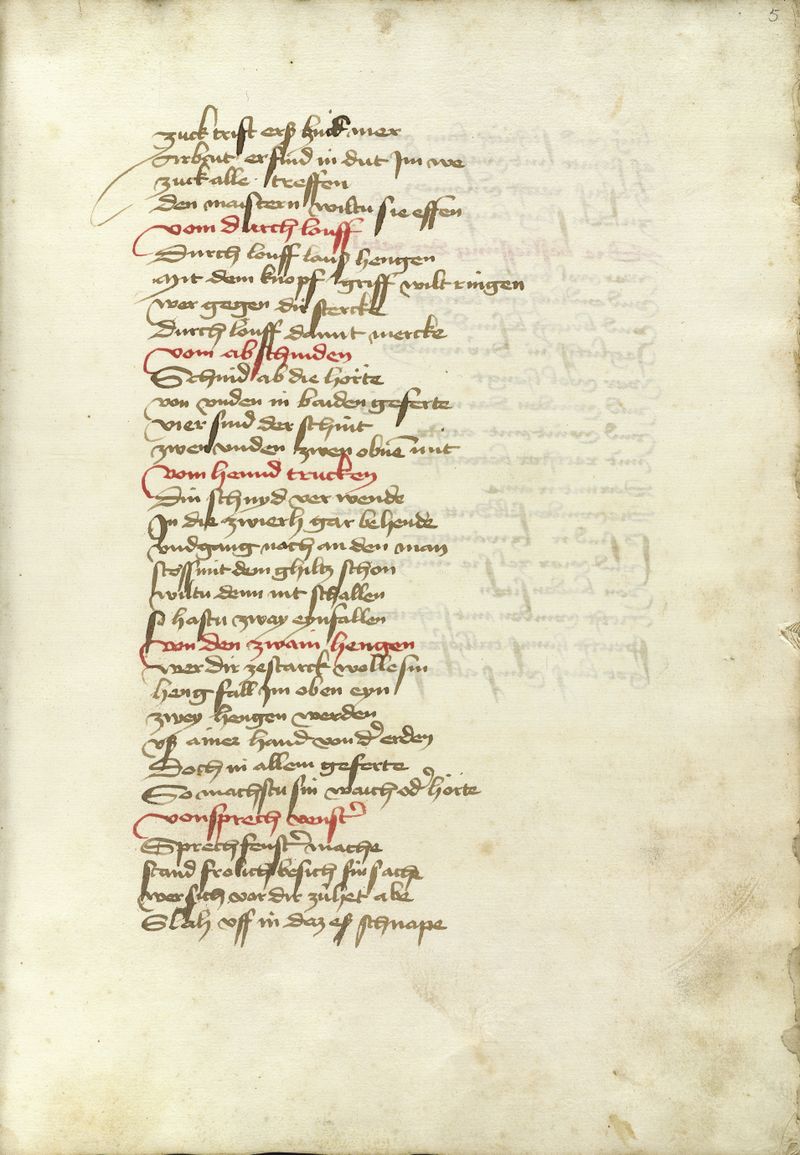 5
zuck trift erß zuck mer
arbait er find in dut Im we
zuck alle treffen
den maistern wiltu sie effen
vom durch louff
Durch louff lauß hengen
Mit dem knopf griff wilt ringen
wer gegen dir stercke
Durch louff damit mercke
vom ab schniden
Schnid ab die hörte
von vnden in baiden geferte
vier sind der schnit
zwen vnden zwen obnē mit
vom hennd trucken
Din schnyd ver wende
In die zwierh gar behende
vnd gang nach an den man
stossß mit dem ghiltz schon
wiltu denn nit schallen
so hastu zway eynfallen
von den zwain hengen
wer dir ze starck wolle sin
heng fall Im oben eyn
zwey hengen werden
vß ainer hand von dˀ erden
Doch in allem geferte
So machstu sin waich odˀ hörte
von sprech venstˀ
Sprech fenstˀ mache
stand frolich besich sin sache
wer sich vor dir zühet abe
Slah vff in daz eß schnape